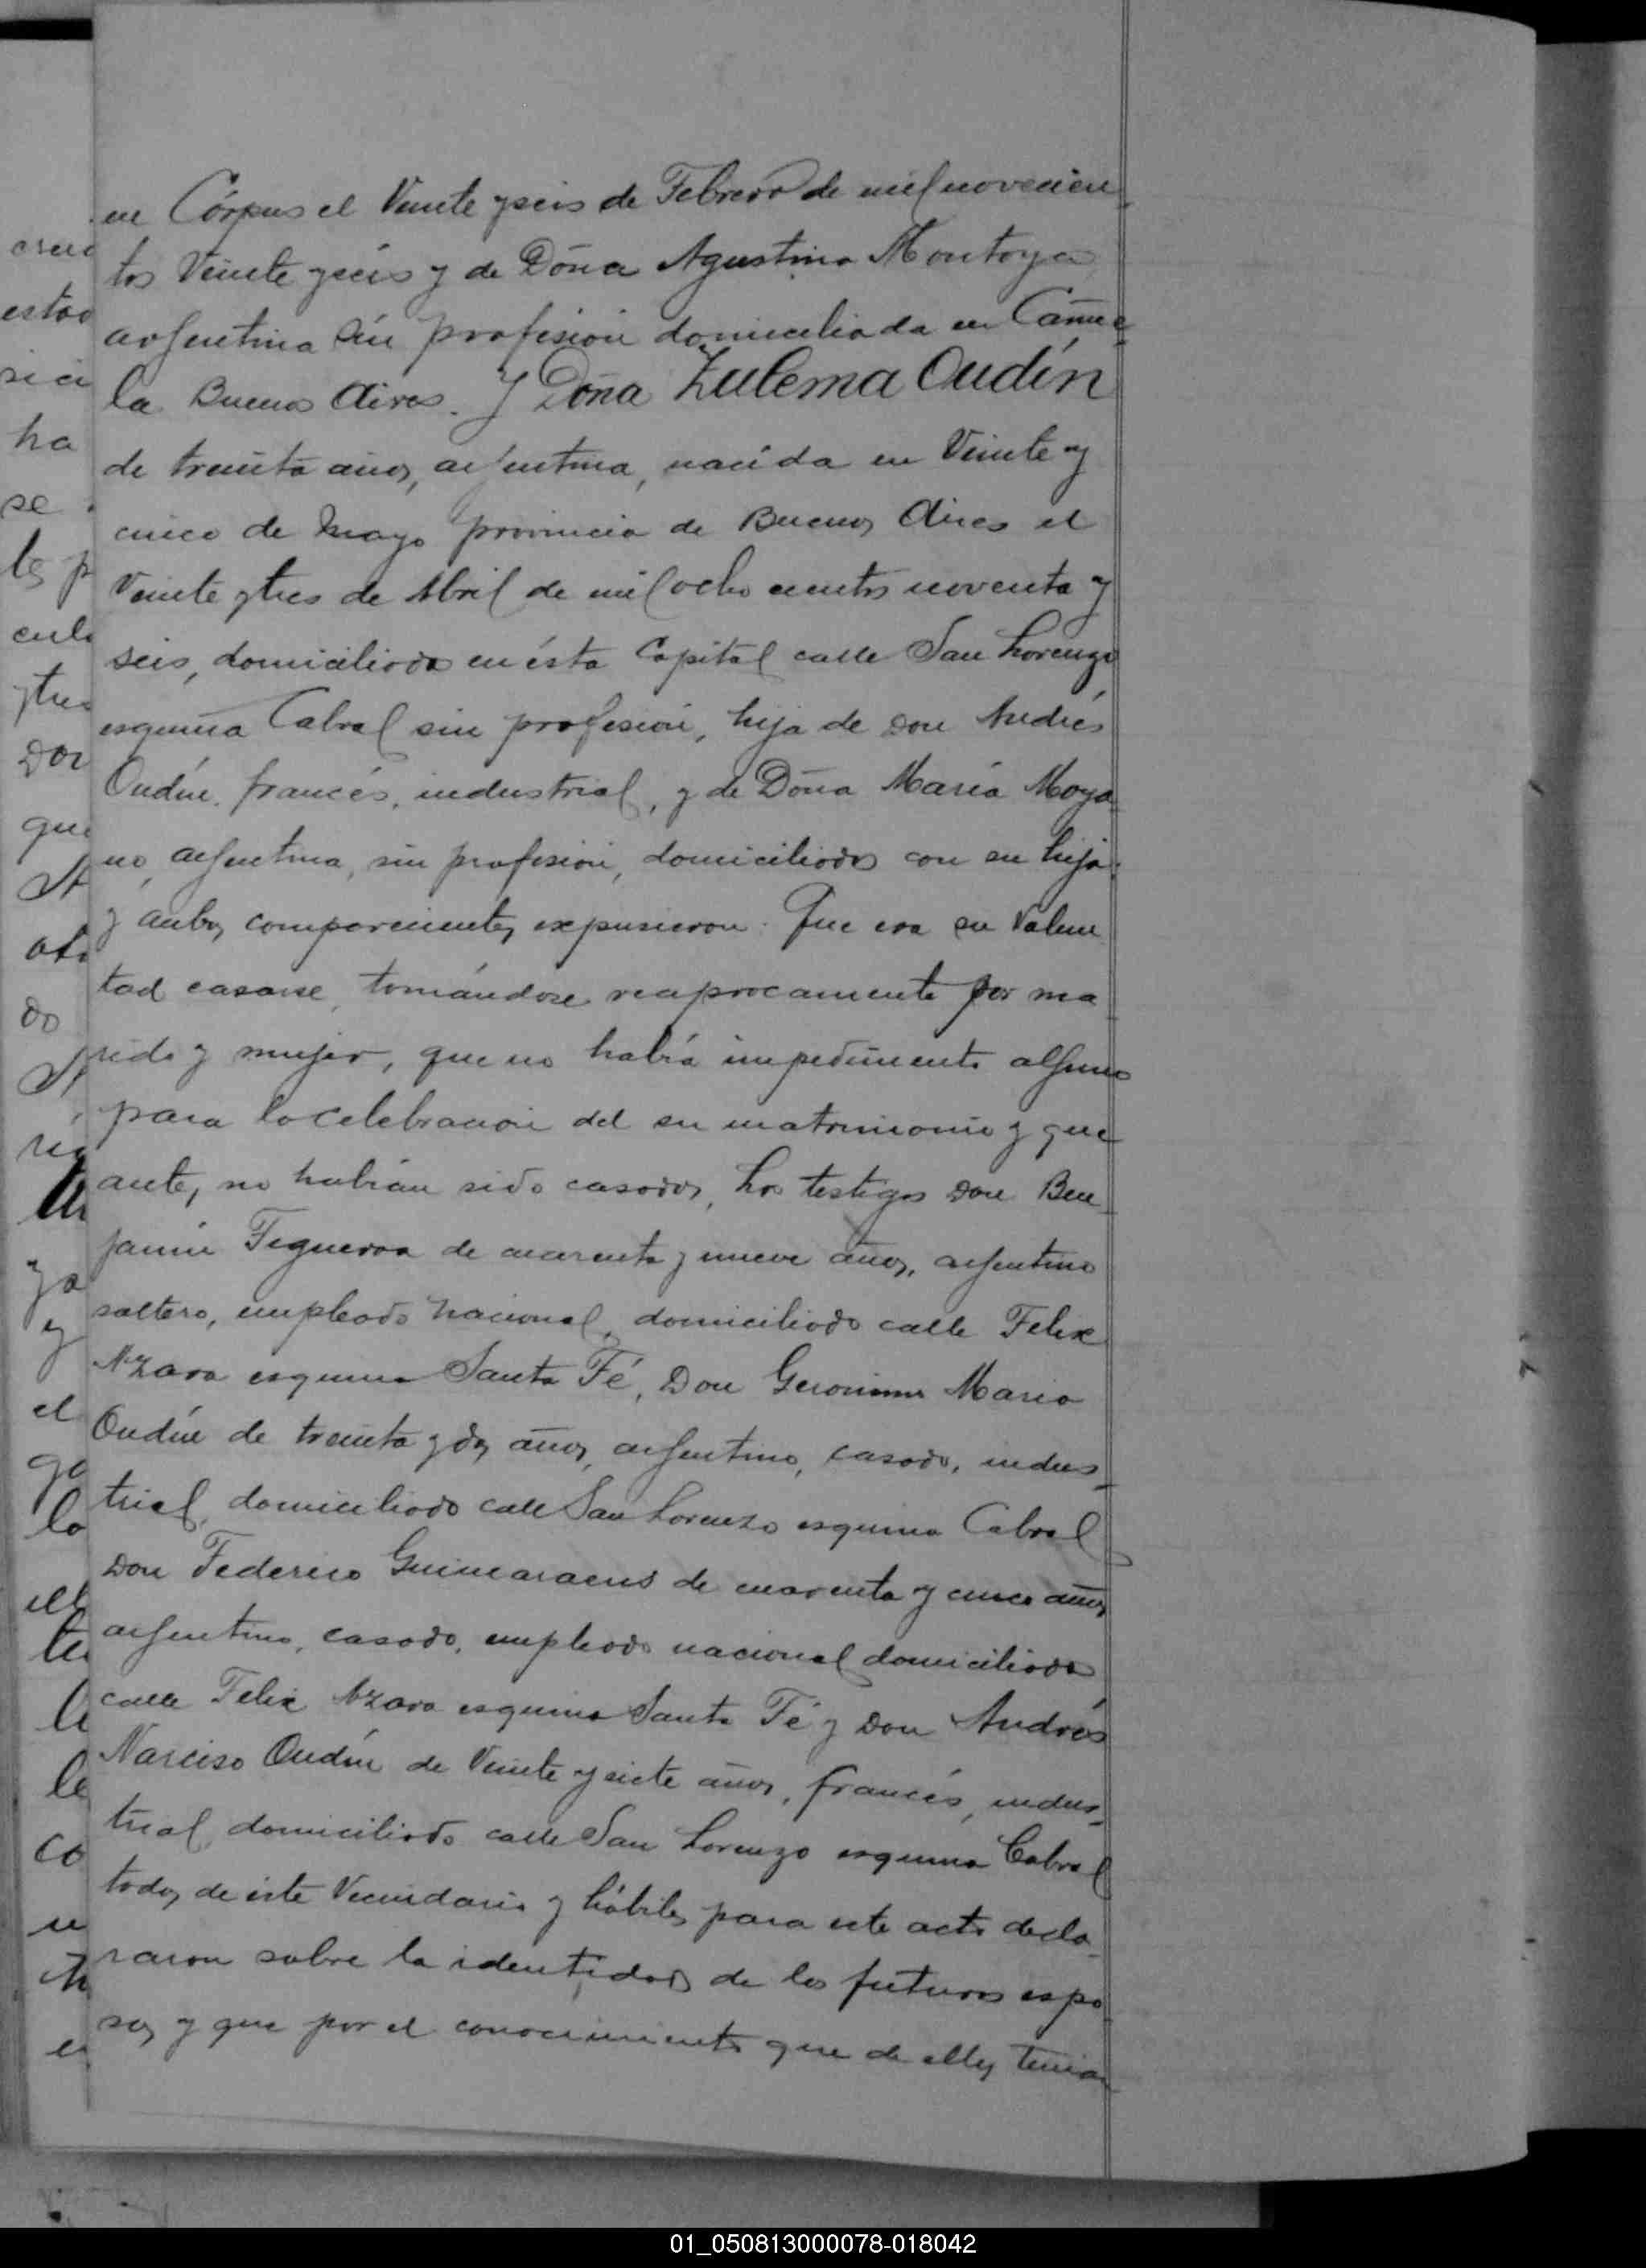 en Córpus el Veinte y seis de Febrero de mil novecien
tos Veinte y seis y de Doña Agustina Montoya
argentina sin profesión domiciliada en Cañue
la Buenos Aires. Y Doña Zulema Oudín
de treinta años, argentina, nacida en Veinte y
cinco de Mayo provincia de Buenos Aires el
Veinte y tres de Abril de mil ocho cientos noventa y
seis, domiciliada en ésta Capital calle San Lorenzo
esquina Cabral sin profesión, hija de Don Andrés
Oudín, francés, industrial, y de Doña María Moya
no, argentina, sin profesión, domiciliados con su hija:
y ambos comparecientes expusieron: Que era su Volun
tad casarse, tomándose reciprocamente por ma
rido y mujer, que no había impedimento alguno
para la celebración del su matrimonio y que
antes no habían sido casados, Los testigos Don Ben
jamín Figueroa de cuarenta y nueve años, argentino
soltero, empleado nacional, domiciliado calle Felix
Azara esquina Santa Fé, Don Geronimo Mario
Oudín de treinta y dos años, argentino, casado, indus
trial, domiciliado calle San Lorenzo esquina Cabral
Don Federico Guimaraens de cuarenta y cinco años
argentino, casado, empleado nacional domiciliado
calle Felix Azara esquina Santa Fé y Don Andrés
Narciso Oudín de Veinte y siete años, francés, indus
trial, domiciliado calle San Lorenzo esquina Cabral
todos de éste Vecindario y hábiles para este acto decla
raron sobre la identidad de los futuros espo
sos y que por el conocimiento que de ellos tenían
01_050813000078-018042